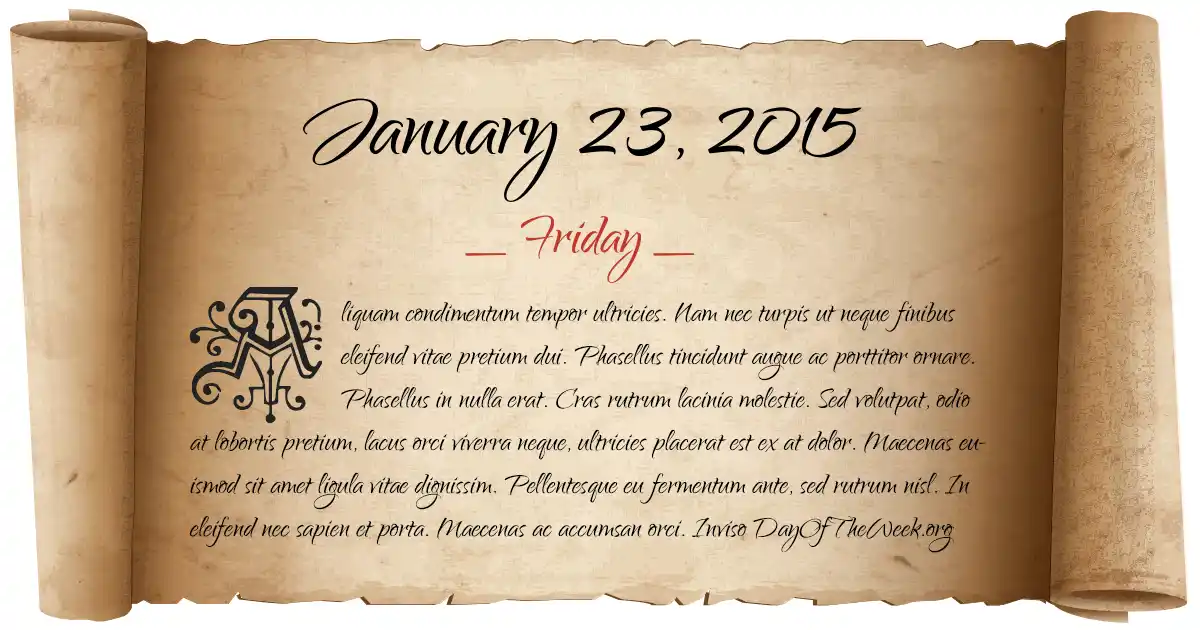 January 23, 2015
_ Friday _
Aliquam condimentum tempor ultricies. Nam nec turpis ut neque finibus
eleifend vitae pretium dui. Phasellus tincidunt augue ac porttitor ornare.
Phasellus in nulla erat. Cras rutrum lacinia molestie. Sed volutpat, odio
at lobortis pretium, lacus orci viverra neque, ultricies placerat est ex at dolor. Maecenas eu-
ismod sit amet ligula vitae dignissim. Pellentesque eu fermentum ante, sed rutrum nisl. In
eleifend nec sapien et porta. Maecenas ac accumsan orci. Inviso DayOfTheWeek.org